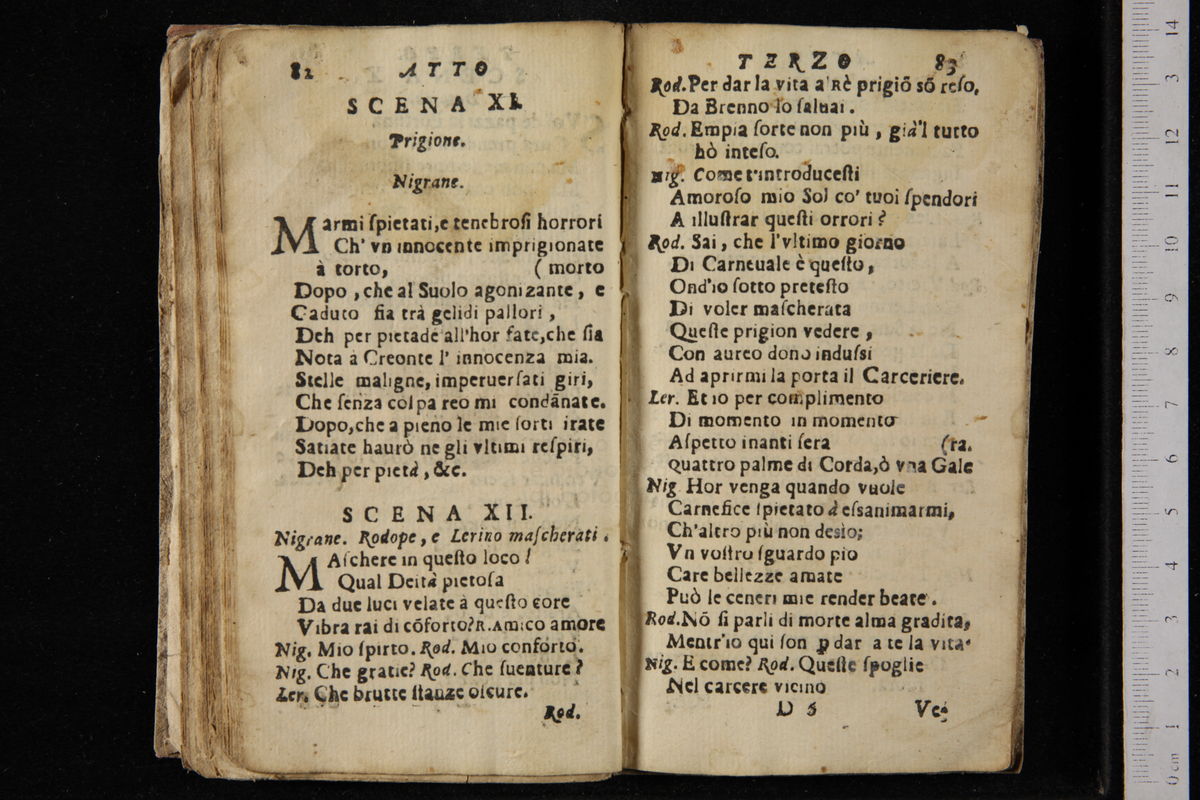 82 ATTO
SCENA XI.
Prigione.
Nigrane.
MArmi ſpietati, e tenebroſi horrori
Ch' vn innocente imprigionate
à torto, (morto
Dopo, che al Suolo agonizante, e
Caduto ſia trà gelidi pallori,
Deh per pietade all'hor fate, che ſia
Nota à Creonte l' innocenza mia.
Stelle maligne, imperuerſati giri,
Che ſenza colpa reo mi condānate.
Dopo, che a pieno le mie ſorti irate
Satiate haurò ne gli vltimi reſpiri,
Deh per pietà, &c.
SCENA XII.
Nigrane. Rodope, e Lerino maſcherati.
MAſchere in queſto loco!
Qual Deità pietoſa
Da due luci velate à queſto core
Vibra rai di cōforto? R. Amico amore
Nig. Mio ſpirto. Rod. Mio conforto.
Nig. Che gratie? Rod. Che ſuenture?
Ler. Che brutte ſtanze oſcure.
Rod.
TERZO 83
Rod. Per dar la vita a' Rè prigiō sō reſo,
Da Brenno lo ſaluai.
Rod. Empia ſorte non più, già'l tutto
hò inteſo.
Nig. Come t'introduceſti
Amoroſo mio Sol co' tuoi ſpendori
A illuſtrar queſti orrori?
Rod. Sai, che l'vltimo giorno
Di Carneuale è queſto,
Ond'io ſotto preteſto
Di voler maſcherata
Queſte prigion vedere,
Con aureo dono induſsi
Ad aprirmi la porta il Carceriere.
Ler. Et io per complimento
Di momento in momento
Aſpetto inanti ſera (ra.
Quattro palme di Corda, ò vna Gale
Nig. Hor venga quando vuole
Carnefice ſpietato à eſsanimarmi,
Ch'altro più non desìo;
Vn voſtro ſguardo pio
Care bellezze amate
Può le ceneri mie render beate.
Rod. Nō ſi parli di morte alma gradita,
Mentr'io qui ſon ꝑ dar a te la vita.
Nig. E come? Rod. Queſte ſpoglie
Nel carcere vicino
D 5 Ve-